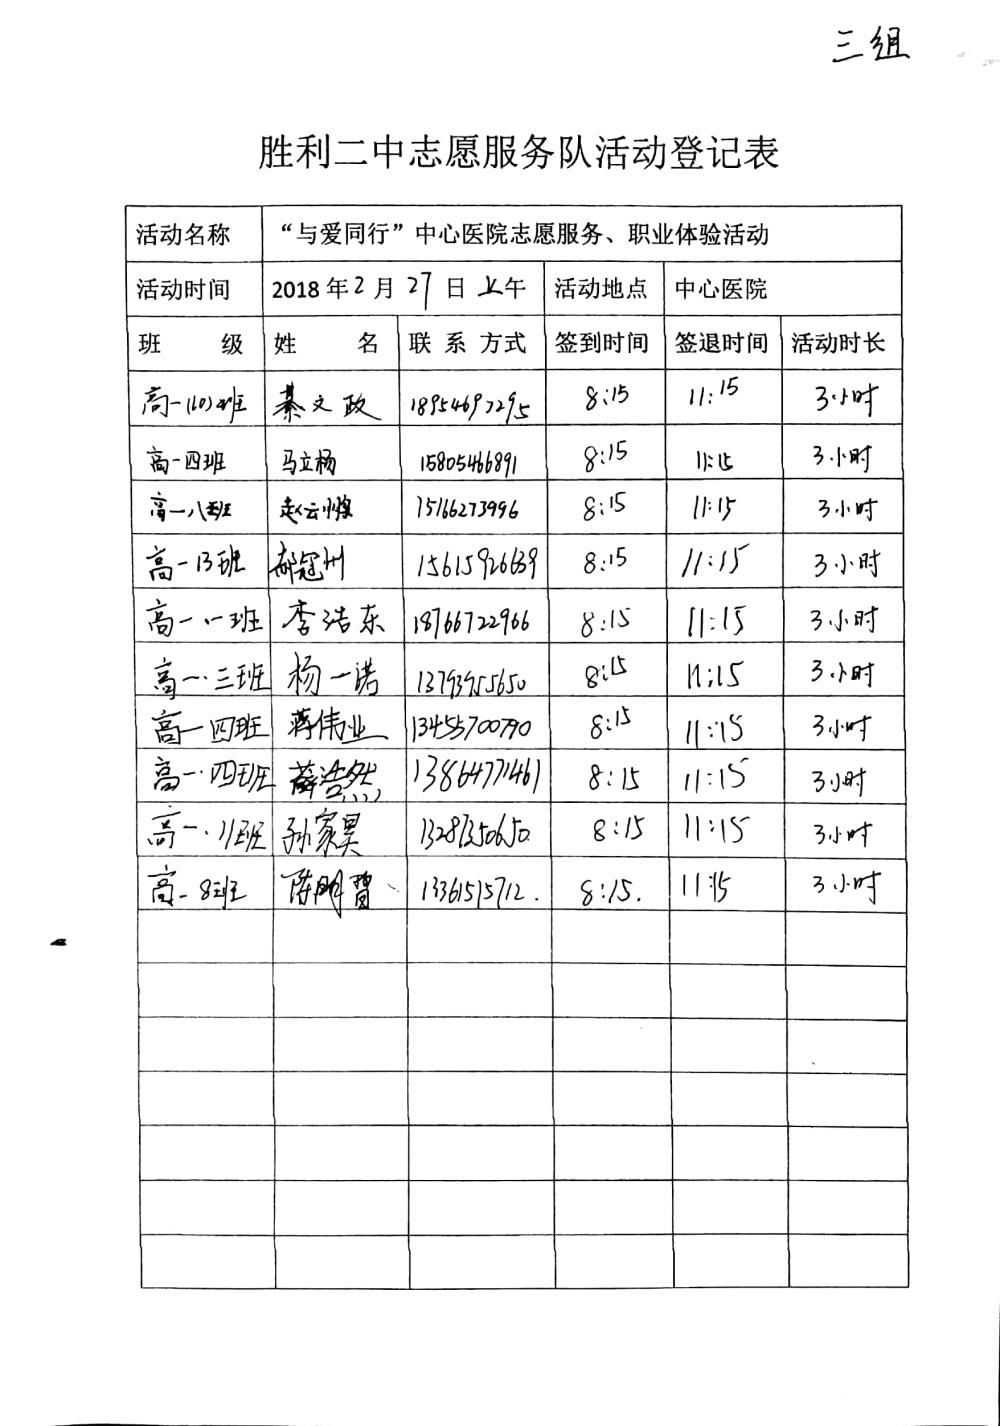 三组
胜利二中志愿服务队活动登记表
活动名称 “与爱同行”中心医院志愿服务、职业体验活动
活动时间 2018年2月27日上午 活动地点 中心医院
班 级 姓 名 联 系 方式 签到时间 签退时间 活动时长
高一(10)班 綦文政 18954697295 8:15 11:15 3小时
高一四班 马立杨 15805466891 8:15 11:15 3小时
高一八班 赵云 15166273996 8:15 11:15 3小时
高一13班 郝冠州 15615926639 8:15 11:15 3小时
高一·一班 李浩东 18766722966 8:15 11:15 3小时
高一·三班 杨一诺 13793955650 8:15 11:15 3小时
高一四班 蒋伟业 13455700790 8:15 11:15 3小时
高一·四班 薛浩然 13864771461 8:15 11:15 3小时
高一·11班 孙家昊 8:15 11:15 3小时
高一8班 陈明 13361515712. 8:15. 11:15 3小时